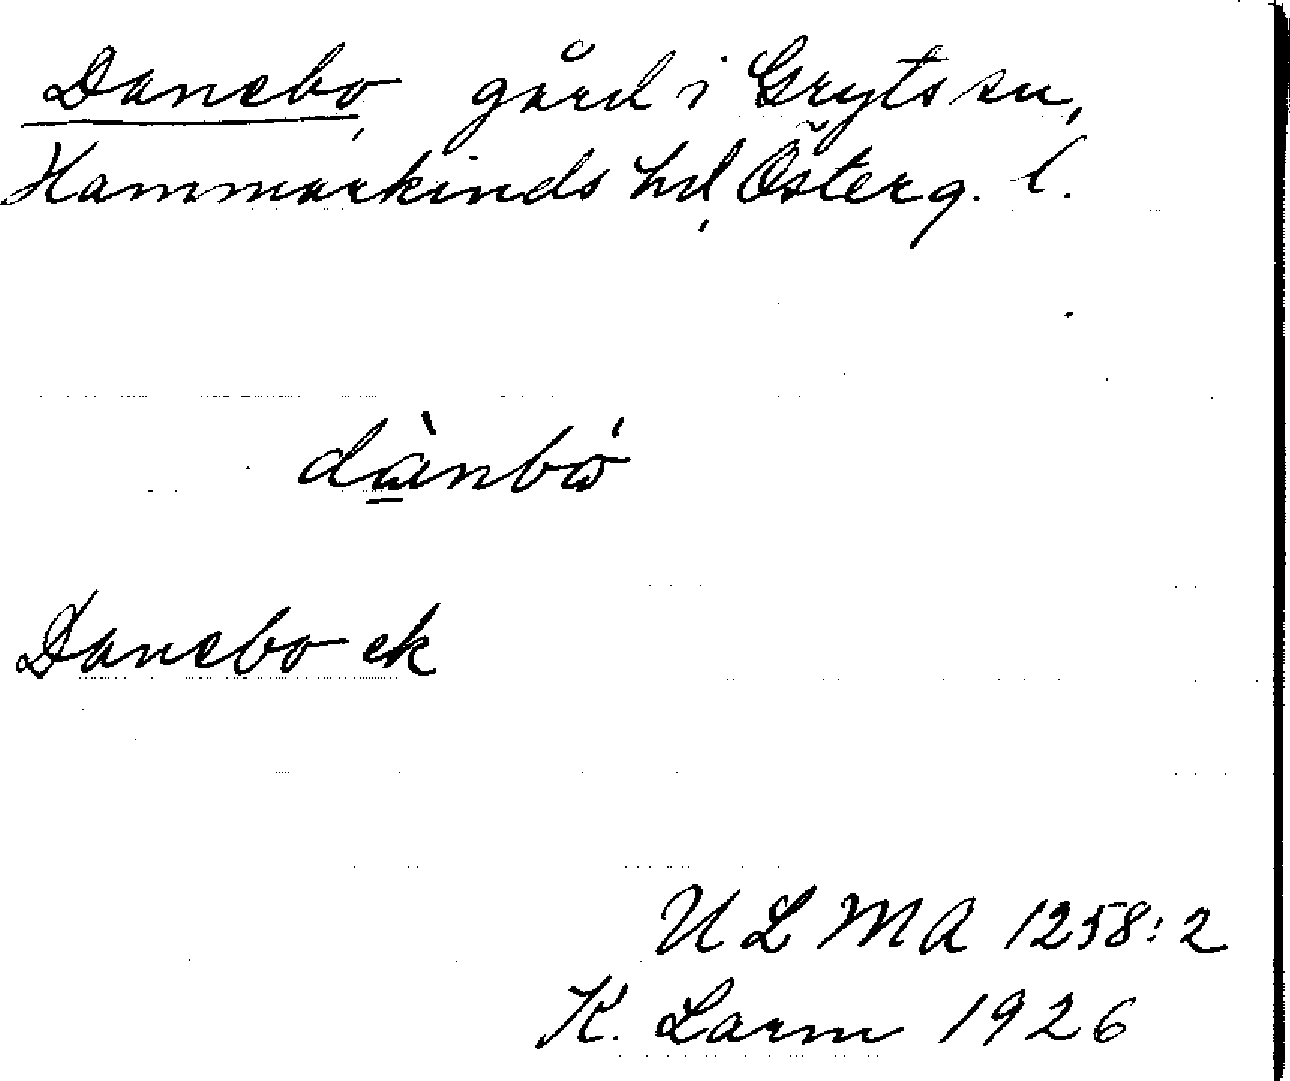 Danebo, gård i Gryts sn,
Hammarkinds hd, Österg. l.
dànbό
Danebo ek
ULMA 1258:2
K. Larm 1926